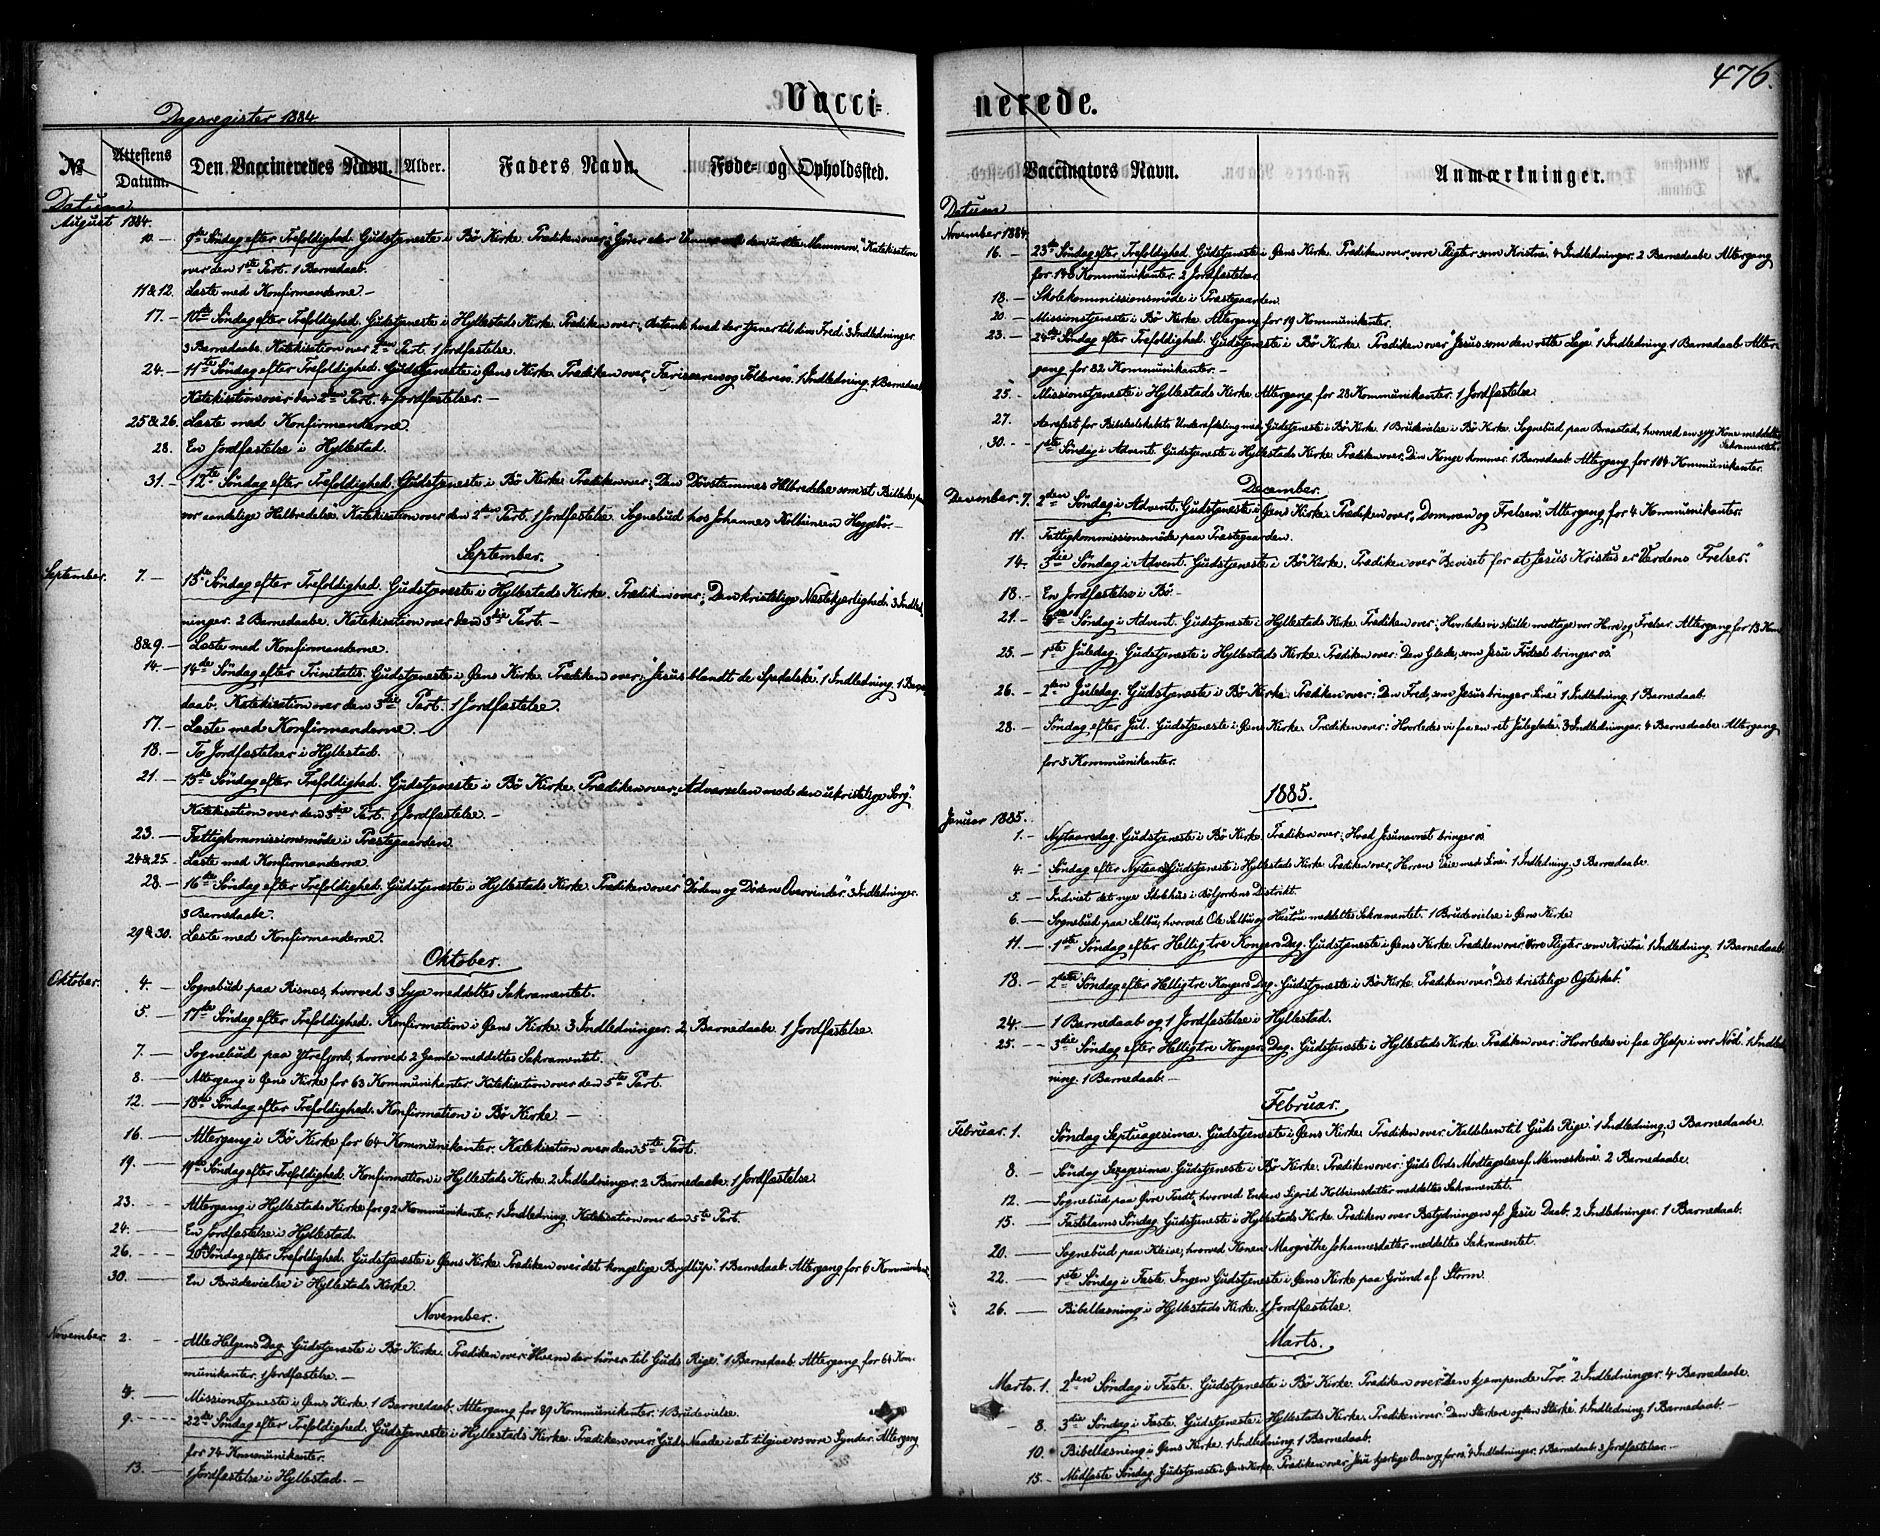 476.
Vacci=
nerede.
Dagsregister 1884.
№
Attestens Datum.
Den Vaccineredes Navn.
Alder.
Faders Navn.
Føde- og Opholdssted.
Vaccinators Navn.
Anmærkninger.
Datum
August 1884.
10. — 9de Söndag efter Trefoldighed. Gudstjeneste i Bö Kirke. Prædiken over: "Gjører eder Venner den urette Mammon." Katekisation
over den 1ste Part. 1 Barnedaab.
11 & 12. Læste med Konfirmanderne. —
17. — 10de Söndag efter Trefoldighed. Gudstjeneste i Hyllestads Kirke. Prædiken over: "Betænk hvad der tjener til din Fred." 3 Indledninger.
3 Barnedaabe. Katekisation over 2den Part. 1 Jordfæstelse.
24. — 11te Söndag efter Trefoldighed. Gudstjeneste i Øens Kirke. Prædiken over: "Farisæeren og Tolderen". 1 Indledning. 1 Barnedaab
Katekisation over den 2den Part. 4 Jordfæstelser. —
25 & 26. Læste med Konfirmanderne.
28. En Jordfæstelse i Hyllestad.
31. — 12te Söndag efter Trefoldighed. Gudstjeneste i Bö Kirke. Prædiken over: "Den Dövstummes Helbredelse som et Billede paa
vor aandelige Helbredelse". Katekisation over den 2den Part. 1 Jordfæstelse. Sognebud hos Johannes Kolbinsen Heggebö. —
September.
September. 7. — 13de Söndag efter Trefoldighed. Gudstjeneste i Hyllestads Kirke. Prædiken over: "Den kristelige Næstekjerlighed". 3 Indled-
ninger. 2 Barnedaabe. Katekisation over den 3die Part. —
8 & 9. — Læste med Konfirmanderne.
14. — 14de Söndag efter Trinitatis. Gudstjeneste i Øens Kirke. Prædiken over: "Jesus blandt de Spedalske". 1 Indledning. 1 Barne-
daab. Katekisation over den 3die Part. 1 Jordfæstelse.
17. — Læste med Konfirmanderne. —
18. — To Jordfæstelser i Hyllestad.
21. — 15de Söndag efter Trefoldighed. Gudstjeneste i Bö Kirke. Prædiken over: "Advarselen mod den ukristelige Sorg".
Katekisation over den 3die Part. 1 Jordfæstelse. —
23. — Fattigkommissionsmöde i Præstegaarden.
24 & 25. — Læste med Konfirmanderne.
28. — 16de Söndag efter Trefoldighed. Gudstjeneste i Hyllestads Kirke. Prædiken over "Döden og Dödens Overvinder". 3 Indledninger.
3 Barnedaabe.
29 & 30. Læste med Konfirmanderne.
Oktober.
Oktober. 4. — Sognebud paa Risnes, hvorved 3 Syge meddeltes Sakramentet.
5. — 17de Söndag efter Trefoldighed. Konfirmation i Øens Kirke. 3 Indledninger. 2 Barnedaabe. 1 Jordfæstelse.
7. — Sognebud paa Ytrefjord, hvorved 2 Gamle meddeltes Sakramentet.
8. — Altergang i Øens Kirke for 63 Kommunikanter. Katekisation over den 5te Part.
12. — 18de Söndag efter Trefoldighed. Konfirmation i Bö Kirke. —
16. — Altergang i Bö Kirke for 64 Kommunikanter. Katekisation over den 5te Part.
19. — 19de Söndag efter Trefoldighed. Konfirmation i Hyllestads Kirke. 2 Indledninger. 2 Barnedaabe. 1 Jordfæstelse.
23. — Altergang i Hyllestads Kirke for 92 Kommunikanter. 1 Indledning. Katekisation over den 5te Part.
24. — En Jordfæstelse i Hyllestad.
26. — 20de Söndag efter Trefoldighed. Gudstjeneste i Øens Kirke. Prædiken over "det kongelige Bryllup". 1 Barnedaab. Altergang for 6 Kommunikanter.
30. — En Brudevielse i Hyllestads Kirke.
November.
November. 2. — Alle Helgens Dag. Gudstjeneste i Bö Kirke. Prædiken over "Hvem der hörer til Guds Rige". 1 Barnedaab. Altergang for 64 Kom-
munikanter. 1 Jordfæstelse. —
4. — Missionstjeneste i Øens Kirke. 1 Barnedaab. Altergang for 89 Kommunikanter. 1 Brudevielse.
9. — 22de Söndag efter Trefoldighed. Gudstjeneste i Hyllestads Kirke. Prædiken over: "Guds Naade i at tilgive os vore Synder." Altergang
for 74 Kommunikanter.
13. — 1 Jordfæstelse i Hyllestad. —
Datum
November 1884.
16. — 23de Söndag efter Trefoldighed. Gudstjeneste i Øens Kirke. Prædiken over: vore Pligter som Kristne. 4 Indledninger. 2 Barnedaabe. Altergang
for 148 Kommunikanter. 2 Jordfæstelser.
18. — Skolekommissionsmöde i Præstegaarden.
20. — Missionstjeneste i Bö Kirke. Altergang for 19 Kommunikanter.
23. — 24de Söndag efter Trefoldighed. Gudstjeneste i Bö Kirke. Prædiken over "Jesus som den rette Læge". 1 Indledning. 1 Barnedaab. Alter-
gang for 82 Kommunikanter. —
25. — Missionstjeneste i Hyllestads Kirke. Altergang for 28 Kommunikanter. 1 Jordfæstelse.
27. Aarsfest for Bibelselskabets Underafdeling med Gudstjeneste i Bö Kirke. 1 Brudevielse i Bö Kirke. Sognebud paa Braastad, hvorved en syg Kone meddeltes
Sakramentet.
30. — 1ste Söndag i Advent. Gudstjeneste i Hyllestads Kirke. Prædiken over: "Din Konge kommer." 1 Barnedaab. Altergang for 104 Kommunikanter.
December.
December. 7. 2den Söndag i Advent. Gudstjeneste i Øens Kirke. Prædiken over: "Dommen og Frelsen". Altergang for 4 Kommunikanter.
11. Fattigkommissionsmöde paa Præstegaarden.
14. — 3die Söndag i Advent. Gudstjeneste i Bö Kirke. Prædiken over "Beviset for at Jesus Kristus er Verdens Frelser."
18. — En Jordfæstelse i Bö. —
21. — Söndag i Advent. Gudstjeneste i Hyllestads Kirke. Prædiken over: "Hvorledes vi skulle modtage vor Herre og Frelser. Altergang for 13 Kom
25. — 1ste Juledag. Gudstjeneste i Hyllestads Kirke. Prædiken over: "Den Glæde, som Jesu Födsel bringer os".
26. — 2den Juledag. Gudstjeneste i Bö Kirke. Prædiken over: "Den Fred, som Jesus bringer Sine". 1 Indledning. 1 Barnedaab.
28. — Söndag efter Jul. Gudstjeneste i Øens Kirke. Prædiken over: "Hvorledes vi faa en ret Juleglæde". 3 Indledninger. 4 Barnedaabe. Altergang
for 5 Kommunikanter.
1885.
Januar 1885.
1. — Nytaarsdag. Gudstjeneste i Bö Kirke. Prædiken over: "Hvad Jesunavnet bringer os"
4. — Söndag efter Nytaar. Gudstjeneste i Hyllestads Kirke. Prædiken over: "Herrens Veie med Sine". 1 Indledning. 3 Barnedaabe.
5. — Indviet det nye Skolehus i Böfjordens Distrikt.
6. — Sognebud paa Sælbu, hvorved Ole Sælbu og Hustru meddeltes Sakramentet. 1 Brudevielse i Øens Kirke
11. — 1ste Söndag efter Hellig tre Kongers Dag. Gudstjeneste i Øens Kirke. Prædiken over: "Vore Pligter som Kristne". 1 Indledning. 1 Barnedaab.
18. — 2den Söndag efter Hellig tre Kongers Dag. Gudstjeneste i Bö Kirke. Prædiken over "Det kristelige Ægteskab".
24. — 1 Barnedaab og 1 Jordfæstelse i Hyllestad.
25. — 3die Söndag efter Hellig tre Kongers Dag. Gudstjeneste i Hyllestads Kirke. Prædiken over: "Hvorledes vi faa Hjælp i vor Nöd". 1 Indled-
ning. 1 Barnedaab. —
Februar.
Februar. 1. Söndag Septuagesima. Gudstjeneste i Øens Kirke. Prædiken over: "Kaldelsen til Guds Rige". 1 Indledning. 3 Barnedaabe.
8. — Söndag Sexagesima. Gudstjeneste i Bö Kirke. Prædiken over: Guds Ords Modtagelse af Menneskene". 2 Barnedaabe.
12. — Sognebud paa Övre Tordt, hvorved Enken Sigrid Kolbeinsdatter meddeltes Sakramentet.
15. — Fastelavns Söndag. Gudstjeneste i Hyllestads Kirke. Prædiken over Betydningen af Jesu Daab. 2 Indledninger. 1 Barnedaab.
20. — Sognebud paa Kleive, hvorved Konen Margrethe Johannesdatter meddeltes Sakramentet.
22. — 1ste Söndag i Faste. Ingen Gudstjeneste i Øens Kirke paa Grund af Storm.
26. — Bibellæsning i Hyllestads Kirke. 1 Jordfæstelse.
Marts.
Marts. 1. 2den Söndag i Faste. Gudstjeneste i Bö Kirke. Prædiken over: "Den kjæmpende Tro". 2 Indledninger. 4 Barnedaabe.
8. 3die Söndag i Faste. Gudstjeneste i Hyllestads Kirke. Prædiken over: "Den Stærkere og den Stærke". 1 Indledning. 1 Barnedaab. —
10. Bibellæsning i Øens Kirke. 1 Indledning. 1 Barnedaab.
15. — Midfaste Söndag. Gudstjeneste i Øens Kirke. Prædiken over "Jesu kjærlige Omsorg for os". 4 Indledninger. 1 Barnedaab. 3 Jordfæstelser. —